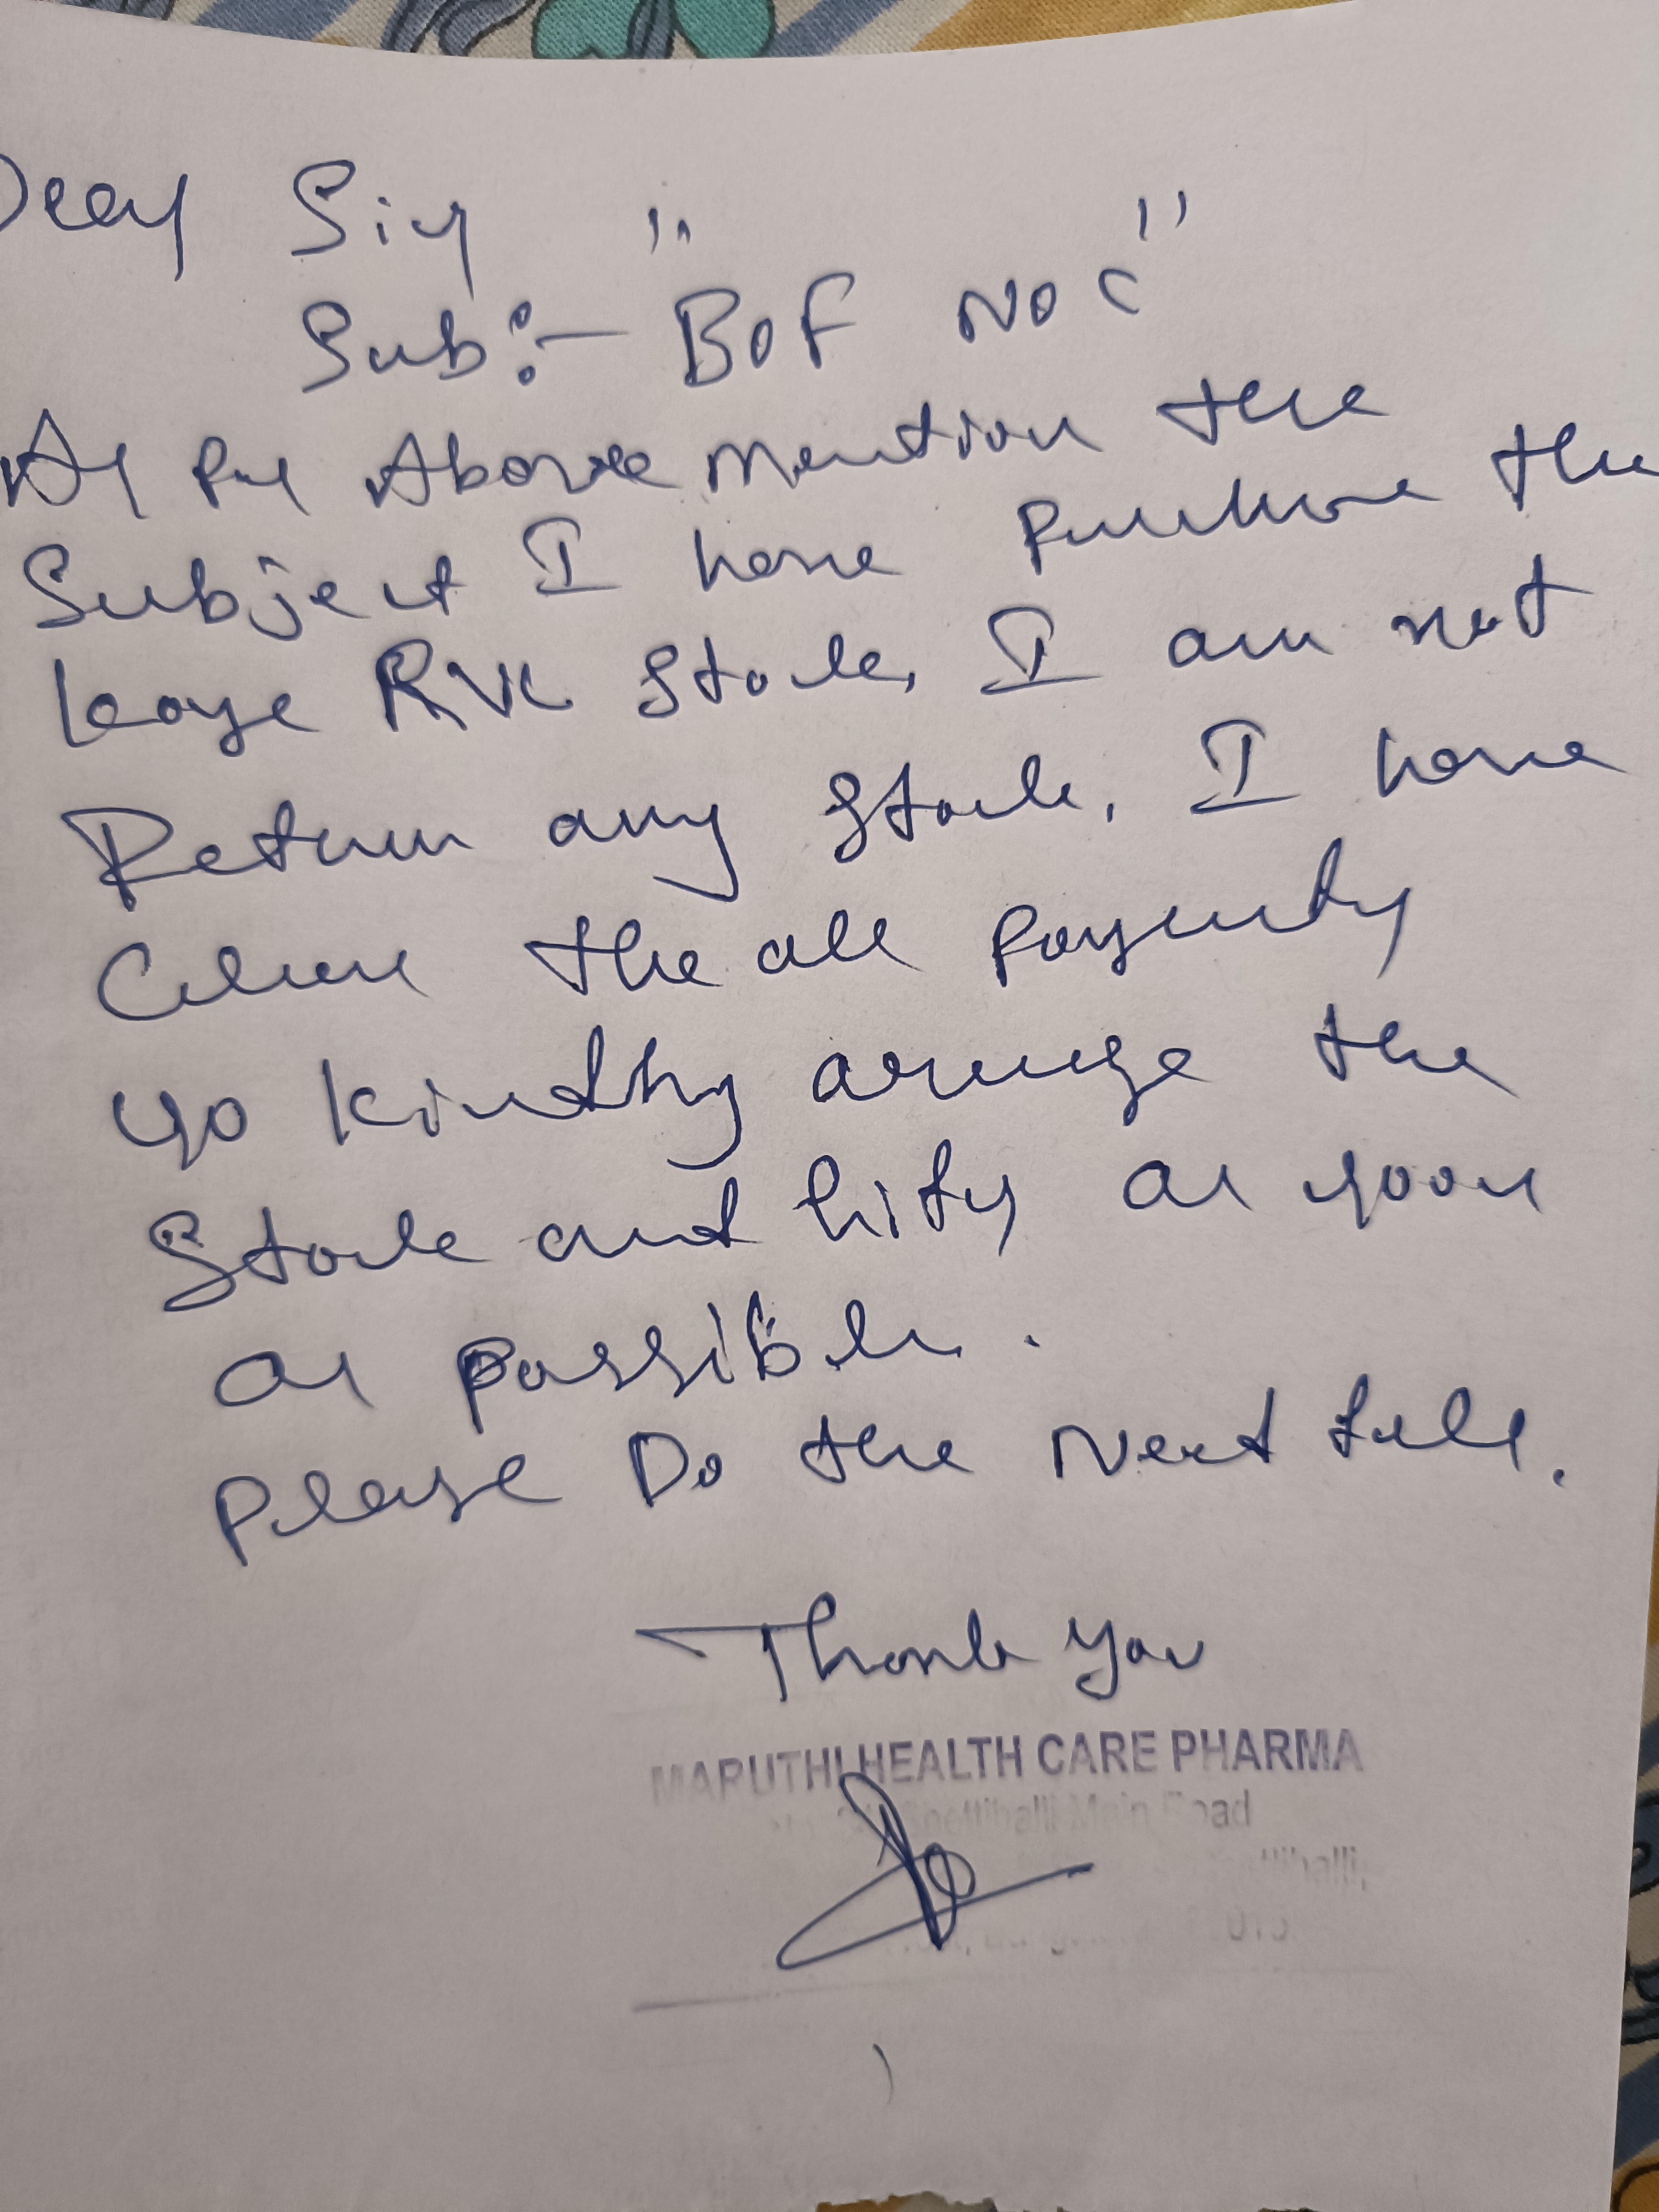 Dear Sir
Sub:- "BOF NOC"
As per Above mention the
Subject I have purchase the
Leaye RVK Stock, I am not
Return any Stock, I have
Clear the all payments
so kindly arrange the
Stock and lifts as soon
as possible.
Please Do the Next full.
Thank you
MARUTHI HEALTH CARE PHARMA
Shettihalli Main Road